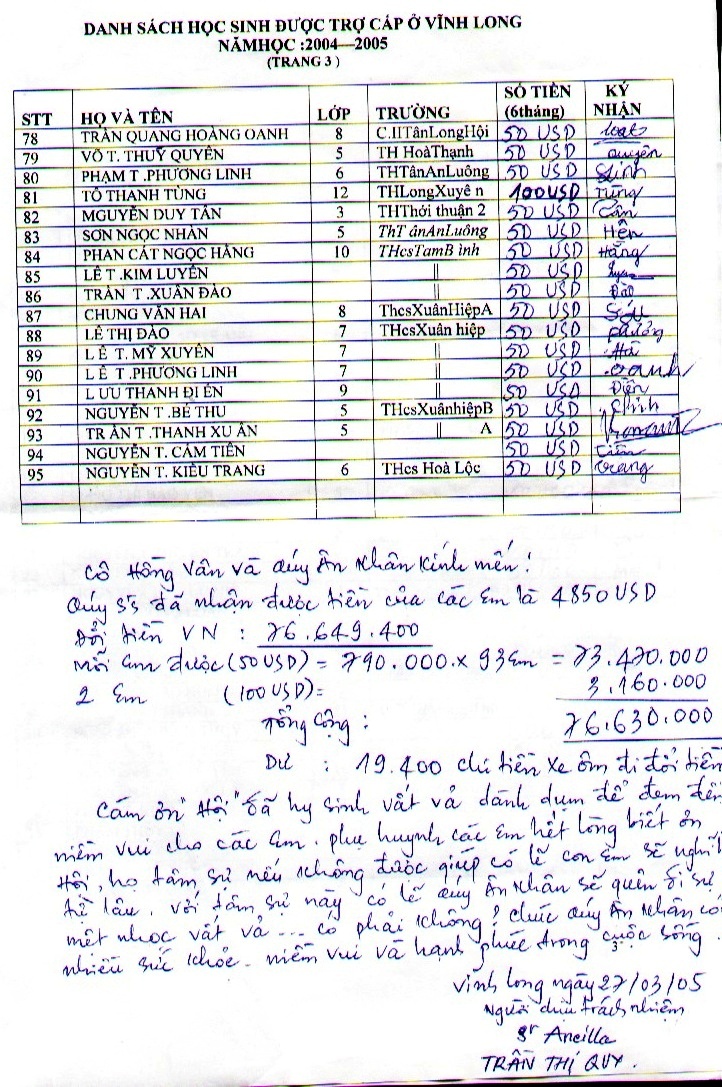 DANH SÁCH HỌC SINH ĐƯỢC TRỢ CẤP Ở VĨNH LONG
NĂMHỌC :2004—2005
(TRANG 3 )
STT HỌ VÀ TÊN LỚP TRƯỜNG SỐ TIỀN (6tháng) KÝ NHẬN
78 TRẦN QUANG HOÀNG OANH 8 C.IITânLongHội 50 USD
79 VÕ T. THUÝ QUYÊN 5 TH HoàThạnh 50 USD quyên
80 PHẠM T .PHƯƠNG LINH 6 THTânAnLuông 50 USD Linh
81 TÔ THANH TÙNG 12 THLongXuyê n 100USD Tùng
82 MGUYỄN DUY TÂN 3 THThới thuận 2 50 USD Tân
83 SƠN NGỌC NHÀN 5 ThT ânAnLuông 50 USD Hên
84 PHAN CÁT NGỌC HẰNG 10 THcsTamB ình 50 USD Hằng
85 LÊ T .KIM LUYẾN || 50 USD
86 TRẦN T .XUÂN ĐÀO || 50 USD Đào
87 CHUNG VĂN HAI 8 ThcsXuânHiệpA 50 USD
88 LÊ THỊ ĐÀO 7 THcsXuân hiệp 50 USD
89 L Ê T. MỸ XUYÊN 7 || 50 USD Hà
90 L Ê T .PHƯƠNG LINH 7 || 50 USD oanh
91 L ƯU THANH ĐI ỀN 9 || 50 USD Điền
92 NGUYỄN T .BÉ THU 5 THcsXuânhiệpB 50 USD Chinh
93 TR ẦN T .THANH XU ÂN 5 || A 50 USD
94 NGUYỄN T. CẨM TIÊN 50 USD Tiên
95 NGUYỄN T. KIỀU TRANG 6 THcs Hoà Lộc 50 USD trang
Cô Hồng Vân và Quý Ân Nhân Kính mến!
Quý S's đã nhận được tiền của các Em là 4850 USD
Đổi tiền VN : 76.649.400
Mỗi Em được (50 USD) = 790.000 x 93 Em = 73.470.000
2 Em (100 USD) = 3.160.000
Tổng Cộng : 76.630.000
Dư : 19.400 chi tiền xe ôm đi đổi tiền
Cám ơn "Hội" đã hy sinh vất vả dành dụm để đem đến
niềm vui cho các Em. phụ huynh các Em hết lòng biết ơn
Hội, họ tâm sự nếu không được giúp có lẽ con Em sẽ nghỉ
từ lâu. với tâm sự này có lẽ quý Ân Nhân sẽ quên đi sự
mệt nhọc vất vả ... có phải không? chúc quý Ân Nhân có
nhiều sức khỏe. niềm vui và hạnh phúc trong cuộc sống.
Vĩnh Long ngày 27/03/05
Người chịu trách nhiệm
Sr Ancilla
TRẦN THỊ QUY.